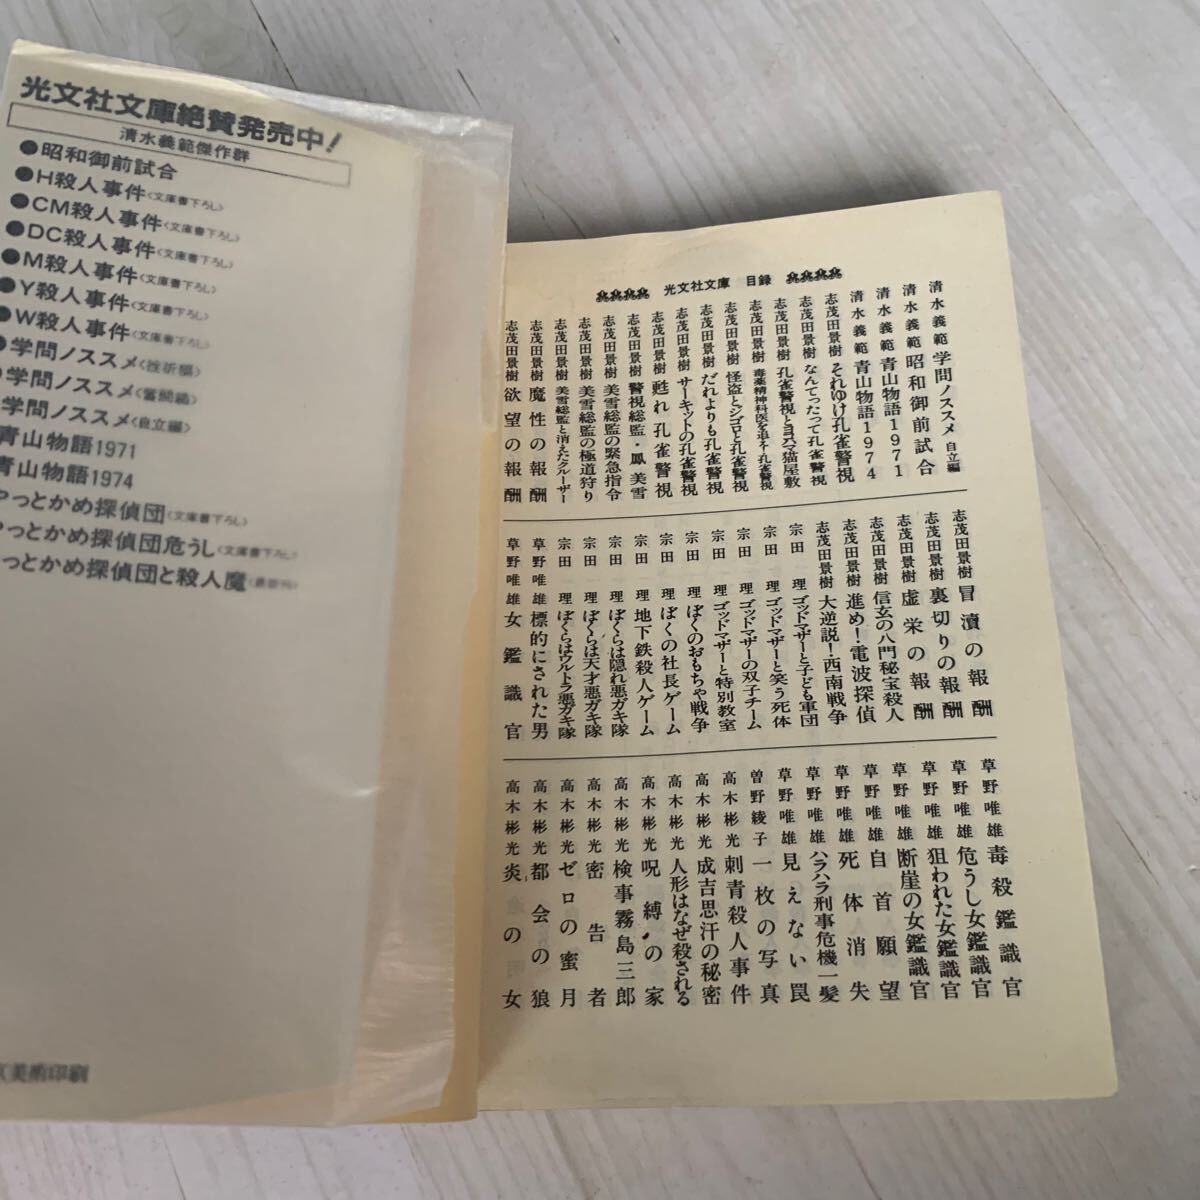 光文社文庫絶賛発売中!
清水義範傑作群
●昭和御前試合
●H殺人事件〈文庫書下ろし〉
●CM殺人事件〈文庫書下ろし〉
●DC殺人事件〈文庫書下ろし〉
●M殺人事件〈文庫書下ろし〉
●Y殺人事件〈文庫書下ろし〉
●W殺人事件〈文庫書下ろし〉
●学問ノススメ〈挫折編〉
学問ノススメ〈奮闘編〉
学問ノススメ〈自立編〉
青山物語1971
青山物語1974
やっとかめ探偵団〈文庫書下ろし〉
っとかめ探偵団危うし〈文庫書下ろし〉
っとかめ探偵団と殺人魔〈最新刊〉
美術印刷
光文社文庫 目録
清水義範 学問ノススメ 自立編
清水義範 昭和御前試合
清水義範 青山物語1971
清水義範 青山物語1974
志茂田景樹 それゆけ孔雀警視
志茂田景樹 なんてったって孔雀警視
志茂田景樹 孔雀警視とヨコハマ猫屋敷
志茂田景樹 毒薬精神科医を追え!孔雀警視
志茂田景樹 怪盗とジゴロと孔雀警視
志茂田景樹 だれよりも孔雀警視
志茂田景樹 サーキットの孔雀警視
志茂田景樹 甦れ孔雀警視
志茂田景樹 警視総監・鳳美雪
志茂田景樹 美雪総監の緊急指令
志茂田景樹 美雪総監の極道狩り
志茂田景樹 美雪総監と消えたクルーザー
志茂田景樹 魔性の報酬
志茂田景樹 欲望の報酬
志茂田景樹 冒瀆の報酬
志茂田景樹 裏切りの報酬
志茂田景樹 虚栄の報酬
志茂田景樹 信玄の八門秘宝殺人
志茂田景樹 進め!電波探偵
志茂田景樹 大逆説!西南戦争
宗田 理 ゴッドマザーと子ども軍団
宗田 理 ゴッドマザーと笑う死体
宗田 理 ゴッドマザーの双子チーム
宗田 理 ゴッドマザーと特別教室
宗田 理 ぼくのおもちゃ戦争
宗田 理 ぼくの社長ゲーム
宗田 理 地下鉄殺人ゲーム
宗田 理 ぼくらは隠れ悪ガキ隊
宗田 理 ぼくらは天才悪ガキ隊
宗田 理 ぼくらはウルトラ悪ガキ隊
草野唯雄 標的にされた男
草野唯雄 女鑑識官
草野唯雄 毒殺鑑識官
草野唯雄 危うし女鑑識官
草野唯雄 狙われた女鑑識官
草野唯雄 断崖の女鑑識官
草野唯雄 自首願望
草野唯雄 死体消失
草野唯雄 ハラハラ刑事危機一髪
草野唯雄 見えない罠
曽野綾子 一枚の写真
高木彬光 刺青殺人事件
高木彬光 成吉思汗の秘密
高木彬光 人形はなぜ殺される
高木彬光 呪縛の家
高木彬光 検事霧島三郎
高木彬光 密告者
高木彬光 ゼロの蜜月
高木彬光 都会の狼
高木彬光 炎の女